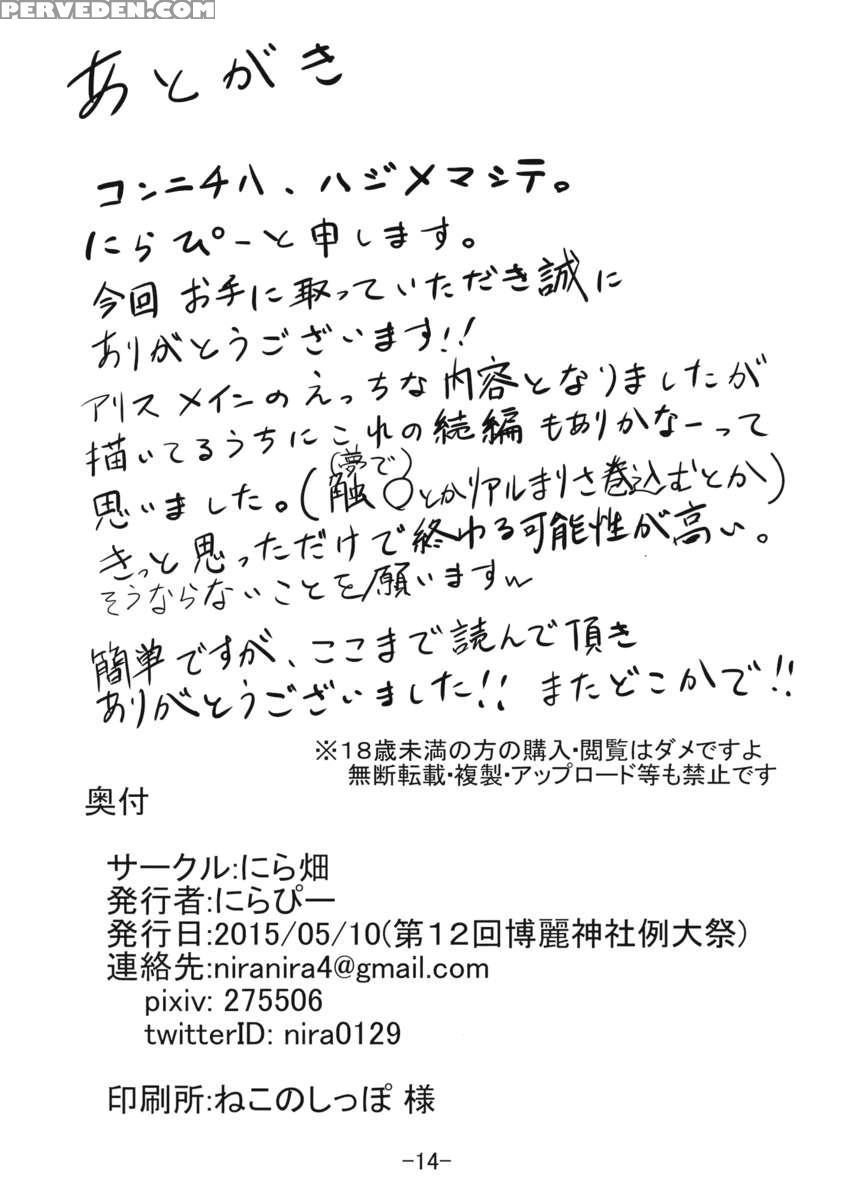 PERVEDEN.COM
あとがき
コンニチハ、ハジメマシテ。
にらぴーと申します。
今回 お手に取っていただき誠に
ありがとうございます!!
アリス メインの えっちな 内容となりましたが
描いてるうちに これの 続編 もありかなーって
(夢で)
思いました。(触○とかリアルまりさ巻込むとか)
きっと 思っただけで 終わる可能性が 高い。
そうならないことを願いますw
簡単ですが、ここまで 読んで 頂き
ありがとうございました!! またどこかで!!
※18歳未満の方の購入・閲覧はダメですよ
無断転載・複製・アップロード等も禁止です
奥付
サークル:にら畑
発行者:にらぴー
発行日:2015/05/10(第12回博麗神社例大祭)
連絡先:niranira4@gmail.com
pixiv: 275506
twitterID: nira0129
印刷所:ねこのしっぽ 様
-14-